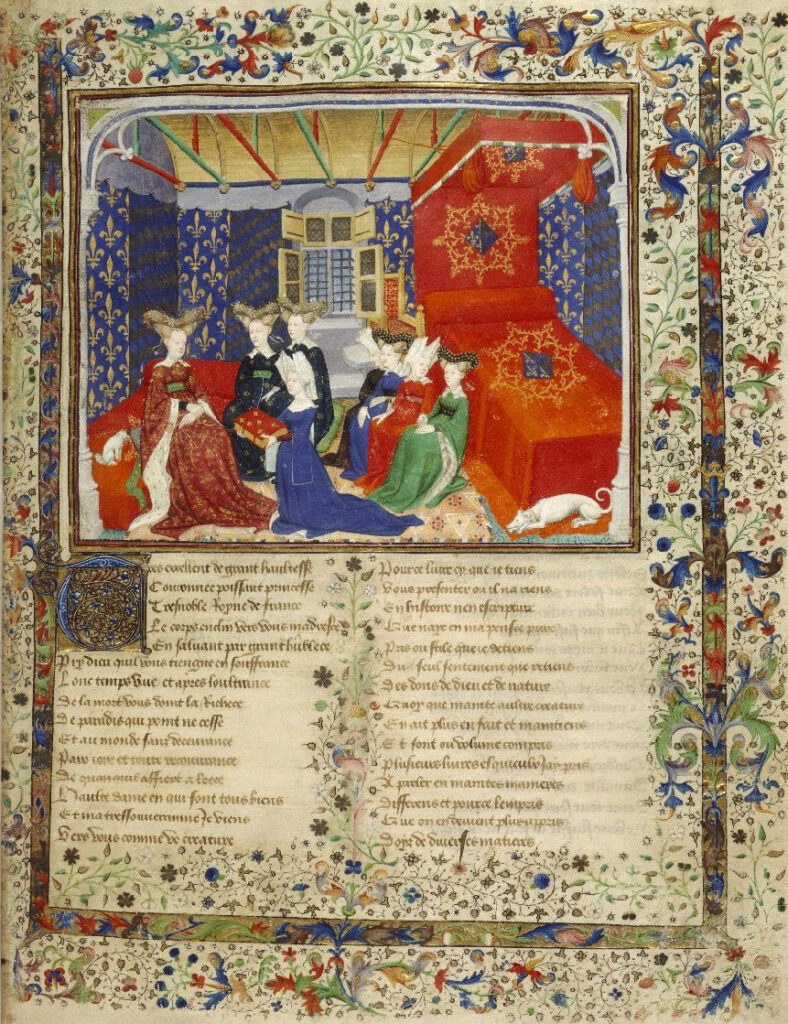 Tres excellent de grant haultesse
Couronnee poissant princesse
Tresnoble Royne de france
Le corps enclin vers vous madresce
En saluant par grant humblece
Pry dieu quil vous tiengne en souffrance
Lonc temps vive et apres loultrance
De la mort vous doint la Richece
De paradis qui point ne cesse
Et au monde sans decevrance
Paix ioye et toute recouvrance
De affiert a leece
Haulte dame en qui sont tous biens
Et ma tressouverainne Je viens
Vers vous comme vo creature
Pource livre cy que ie tiens
Vous presenter ou il na riens
En histoire nen escripture
Que naye en ma pensee pure
Pris ou stile que ie detiens
Du seul sentement que retiens
Des dons de dieu et de nature
Quoy que mainte aultre creature
En ait plus en fait et maintiens
Et sont ou volume compris
Plusieurs livres esquieulx Jay pris
A parler en maintes manieres
Differens et pource lempris
Que on en devient plus apris
Doyr de diverses matieres